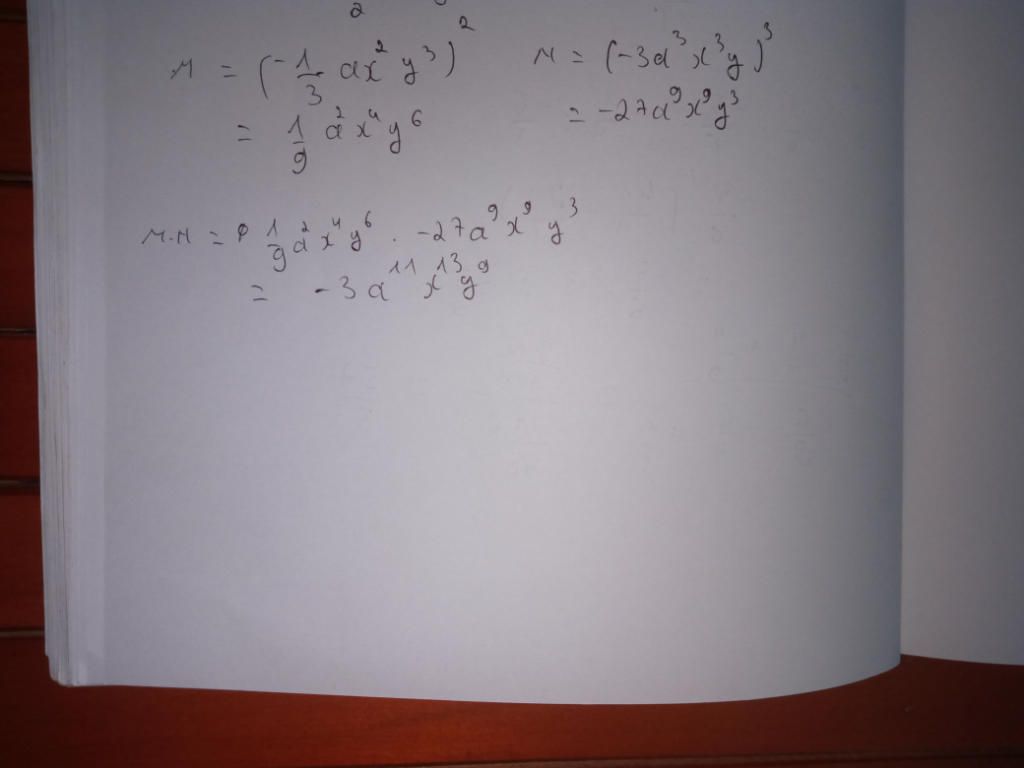 M = (-1/3 ax² y³)² N = (-3a³ x³y)³
= 1/9 a² x⁴ y⁶ = -27a⁹ x⁹ y³
M.N = 1/9 a² x⁴ y⁶ . -27a⁹ x⁹ y³
= -3a¹¹ x¹³ y⁹